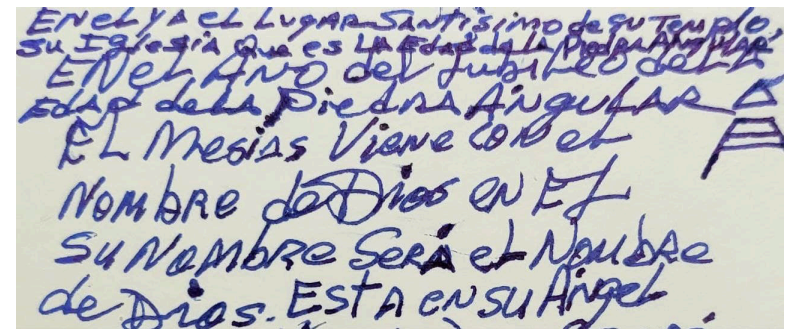 EN el YA el LugAR SANTísimo de su TemPlo,
su IglesiA Que es LA EdAd de lA PiedRA ANgulAR
EN el AÑO del Jubileo de LA
EdAd de lA PiedRA ANgulAR
EL MesíAs VieNe coN el
NomBRe de Dios eN EL
Su NomBRe SeRá el NomBRe
de Dios. EstA eN su ÁNgel